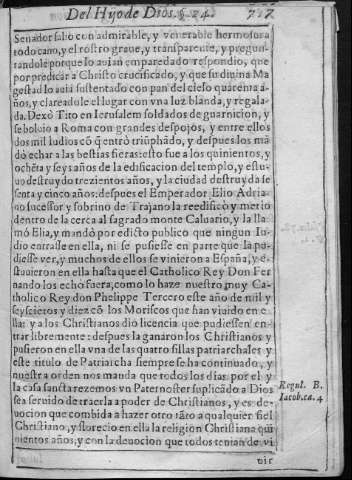 Del Hyo de Dios. §. 24. 727
Senador salio con admirable, y venerable hermosura
todo cano, y el rostro graue, y transparente, y pregun-
tandole porque lo auian emparedado respondio, que
por predicar a Christo crucificado, y que su diuina Ma
gestad lo auia sustentado con pan del cielo quarenta a-
ños, y clareadole el lugar con vna luz blanda, y regala-
da. Dexò Tito en Ierusalem soldados de guarnicion, y
se boluio a Roma con grandes despojos, y entre ellos
dos mil Iudios cõ q̃ entrò triũphãdo, y despues los mã
dò echar a las bestias fieras: esto fue a los quinientos, y
ochẽta y seys años de la edificacion del templo, y estu-
uo destruydo trezientos años, y la ciudad destruyda se
senta y cinco años: despues el Emperador Elio Adria-
no sucessor y sobrino de Trajano la reedificò y metio
dentro de la cerca al sagrado monte Caluario, y la lla-
mò Elia, y mandò por edicto publico que ningun Iu-
dio entrasse en ella, ni se pusiesse en parte que la pu-
diesse ver, y muchos de ellos se vinieron a España, y e-
stuuieron en ella hasta que el Catholico Rey Don Fer
nando los echò fuera, como lo haze nuestro muy Ca-
tholico Rey don Phelippe Tercero este año de mil y
seyscietos y diez cõ los Moriscos que han viuido en e-
lla: y a los Christianos dio licencia que pudiessen en-
trar libremente: despues la ganaron los Christianos y
pusieron en ella vna de las quatro sillas patriarchales y
este titulo de Patriarcha siempre se ha continuado, y
nuestra orden nos manda que todos los dias por el y
la casa sancta rezemos vn Paternoster suplicãdo a Dios
sea seruido de traerla a poder de Christianos, y es de-
uocion que combida a hazer otro tãto a qualquier fiel
Christiano, y florecio en ella la religion Christiana qui
nientos años, y con la deuocion que todos tenian de vi
Regul. B.
Iacob. ca. 4
uir